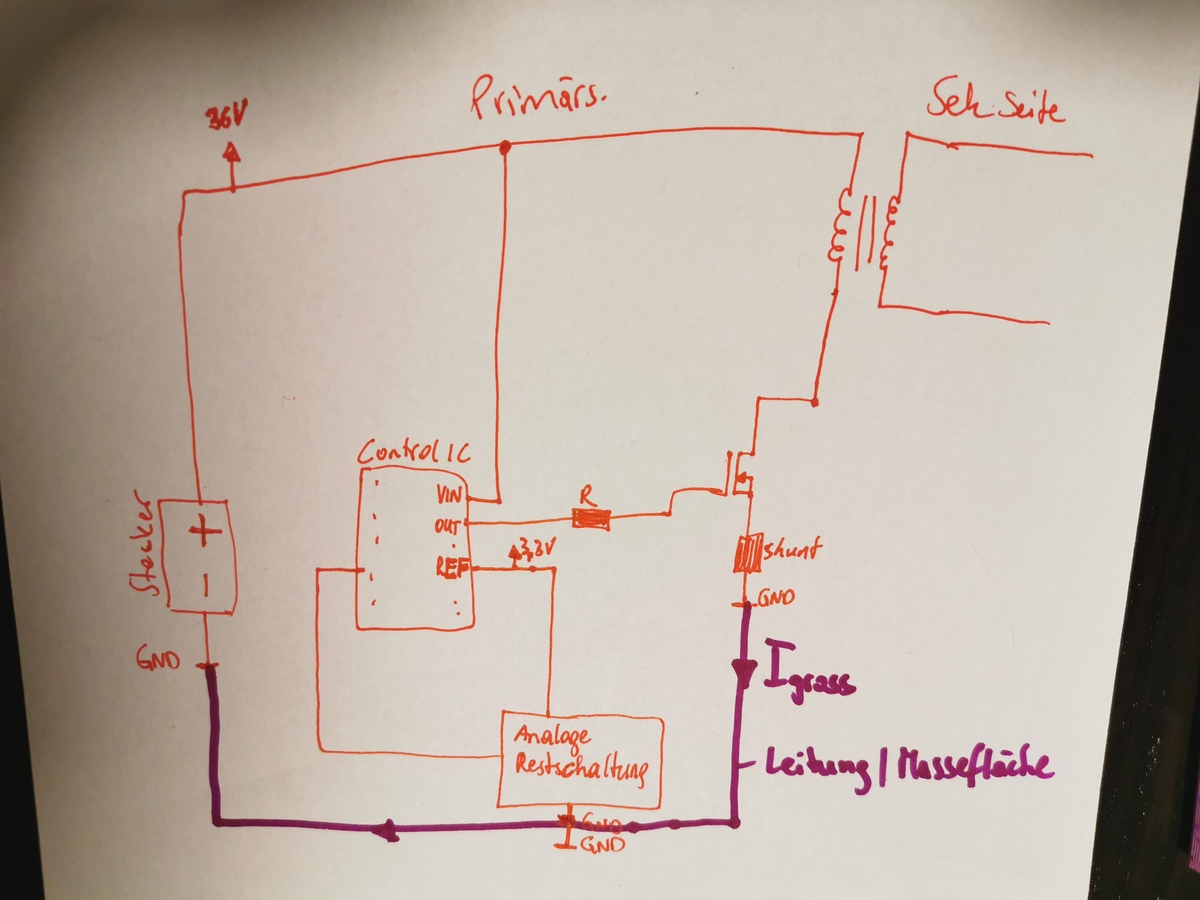 Primärs.
Sek. Seite
36V
Control IC
VIN
OUT
REF
3,3V
R
Stecker
+
-
GND
shunt
GND
I gross
Leitung / Massefläche
Analoge
Restschaltung
GND
GND